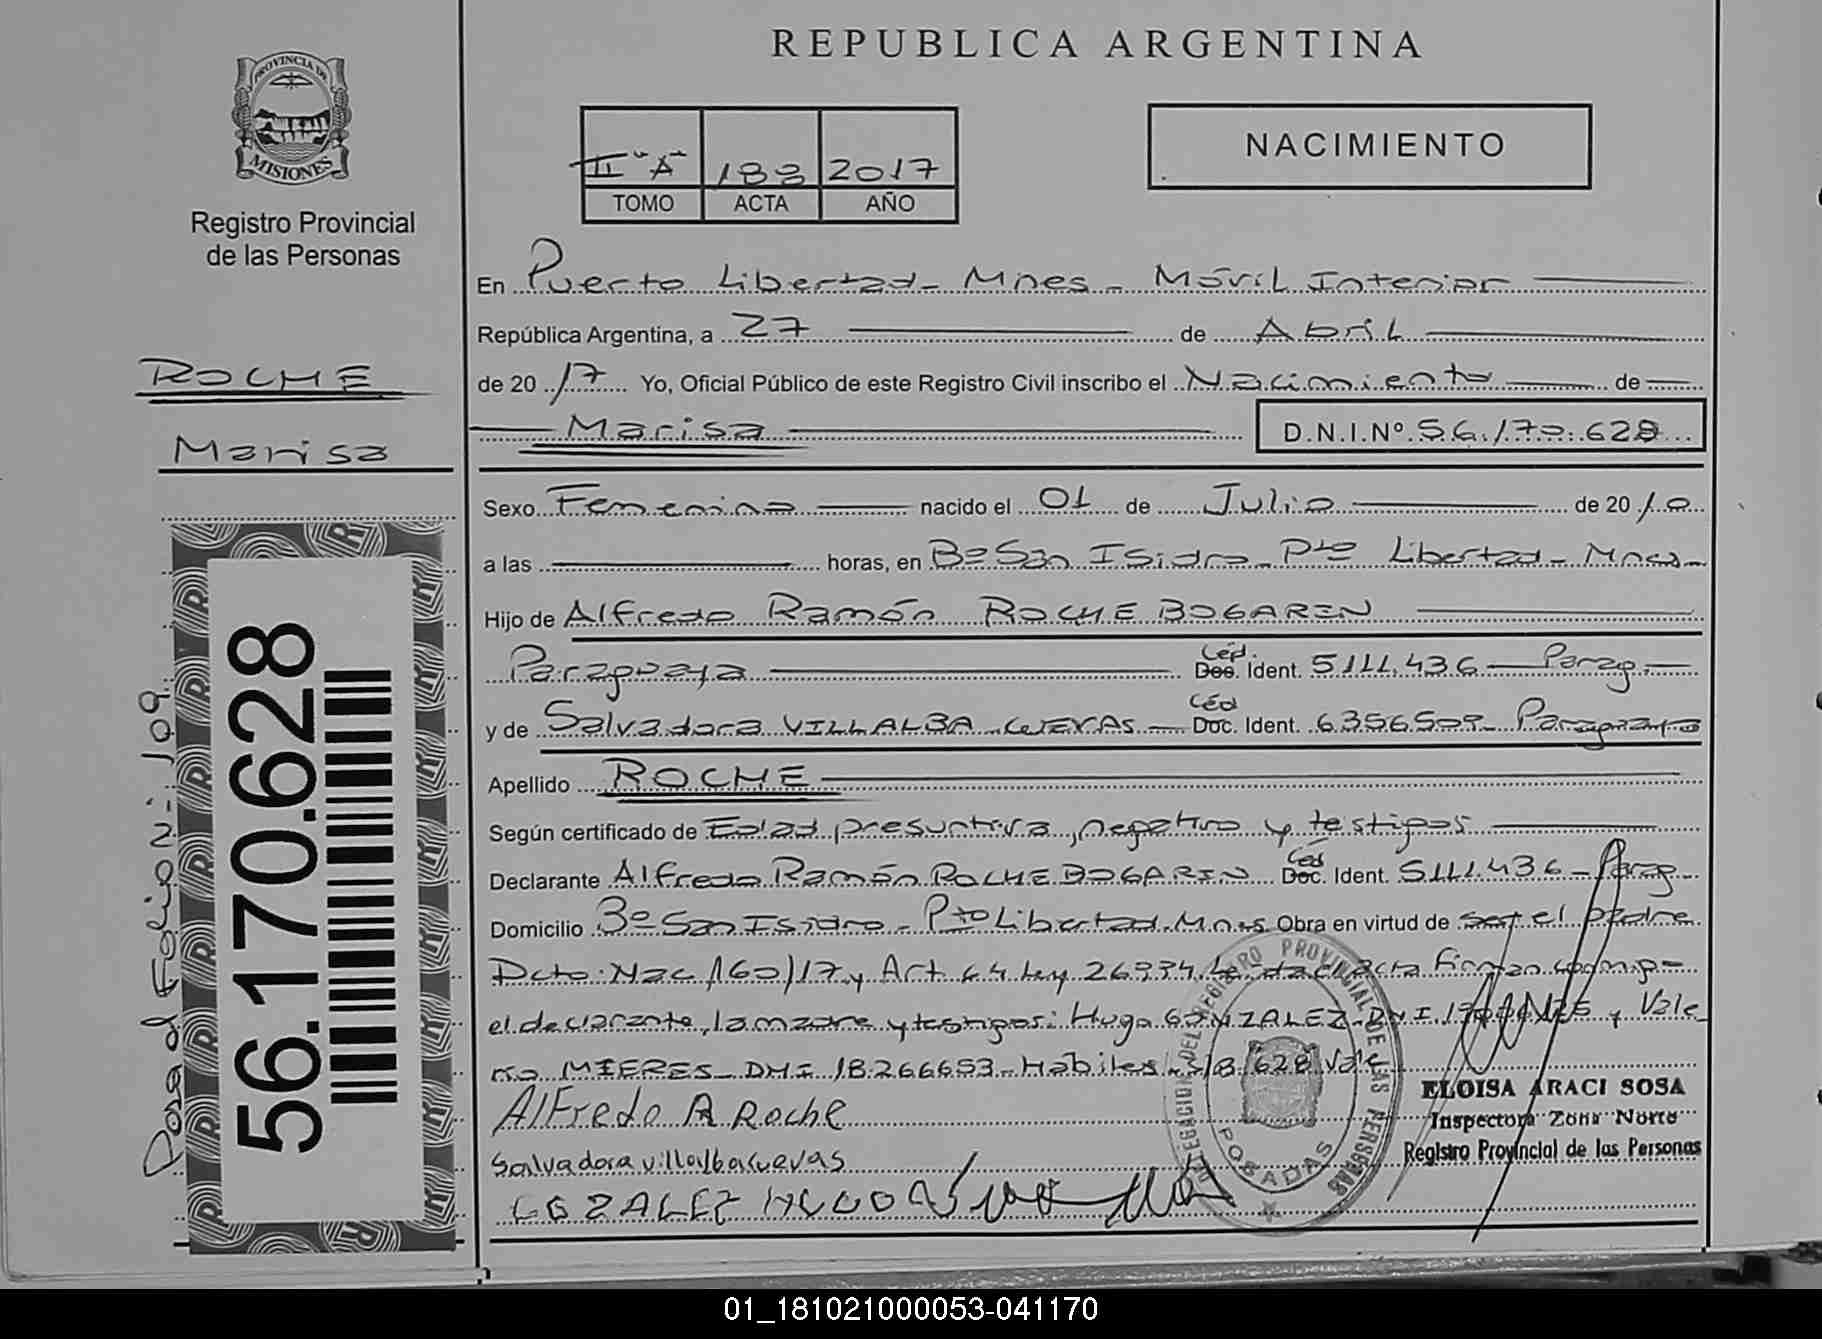 REPUBLICA ARGENTINA
PROVINCIA DE
MISIONES
Registro Provincial
de las Personas
II "A" 188 2017
TOMO ACTA AÑO
NACIMIENTO
ROCHE
Marisa
Pasa al Folio Nº 109
56.170.628
En Puerto Libertad - Mnes - Móvil Interior
República Argentina, a 27 de Abril
de 2017 Yo, Oficial Público de este Registro Civil inscribo el Nacimiento de
Marisa D.N.I.Nº 56.170.628
Sexo Femenino nacido el 01 de Julio de 2010
a las horas, en Bº San Isidro - Pto Libertad - Mnes -
Hijo de Alfredo Ramón ROCHE BOGARIN
Paraguaya Céd. Doc. Ident. 5111.436 - Parag.
y de Salvadora VILLALBA CUEVAS - Céd Doc. Ident. 6356509 - Paraguaya
Apellido ROCHE
Según certificado de Edad presuntiva, negativo y testigos
Declarante Alfredo Ramón ROCHE BOGARIN Céd Doc. Ident. 5111.436 - Parag
Domicilio Bº San Isidro - Pto Libertad - Mnes Obra en virtud de ser el padre
Dcto. Nac 160/17 y Art 64 Ley 26994 Leida el acta firman conmigo
el declarante, la madre y testigos: Hugo GONZALEZ DNI y Vale
rio MIERES - DNI 18.266653 - Habiles - S/B 628 Vale
Alfredo R Roche
Salvadora villalba cuevas
GOZALEZ HUGO
DELEGACION DEL REGISTRO PROVINCIAL DE LAS PERSONAS
POSADAS
ELOISA ARACI SOSA
Inspectora Zona Norte
Registro Provincial de las Personas
01_181021000053-041170